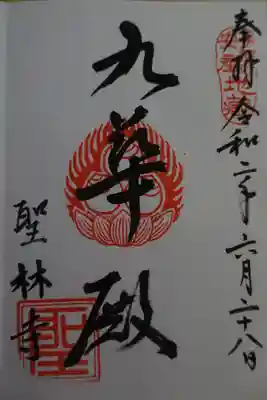 奉拝 令和二年 六月二十八日
九華殿
聖林寺